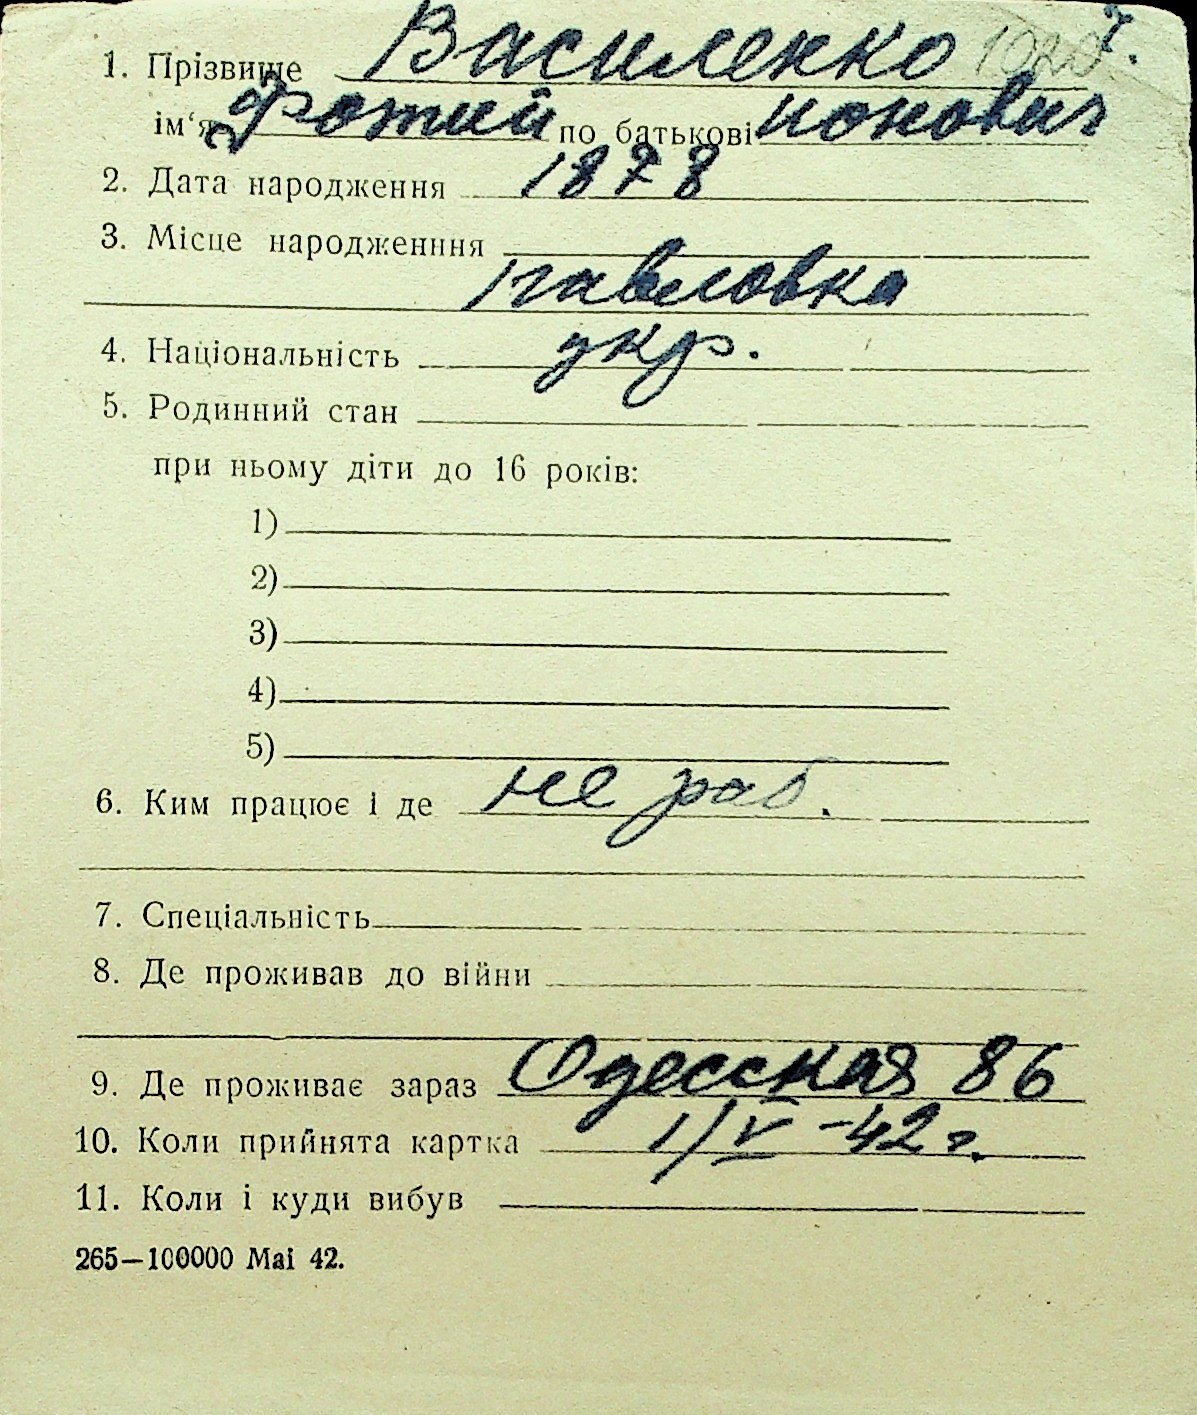 1. Прізвище Василенко
ім‘я Фотий по батькові Ионович
2. Дата народження 1878
3. Місце народженння
Павловка
4. Національність укр.
5. Родинний стан
при ньому діти до 16 років:
1)
2)
3)
4)
5)
6. Ким працює і де не раб.
7. Спеціальність
8. Де проживав до війни
9. Де проживає зараз Одесская 86
10. Коли прийнята картка 1/V-42 г.
11. Коли і куди вибув
265—100000 Mai 42.